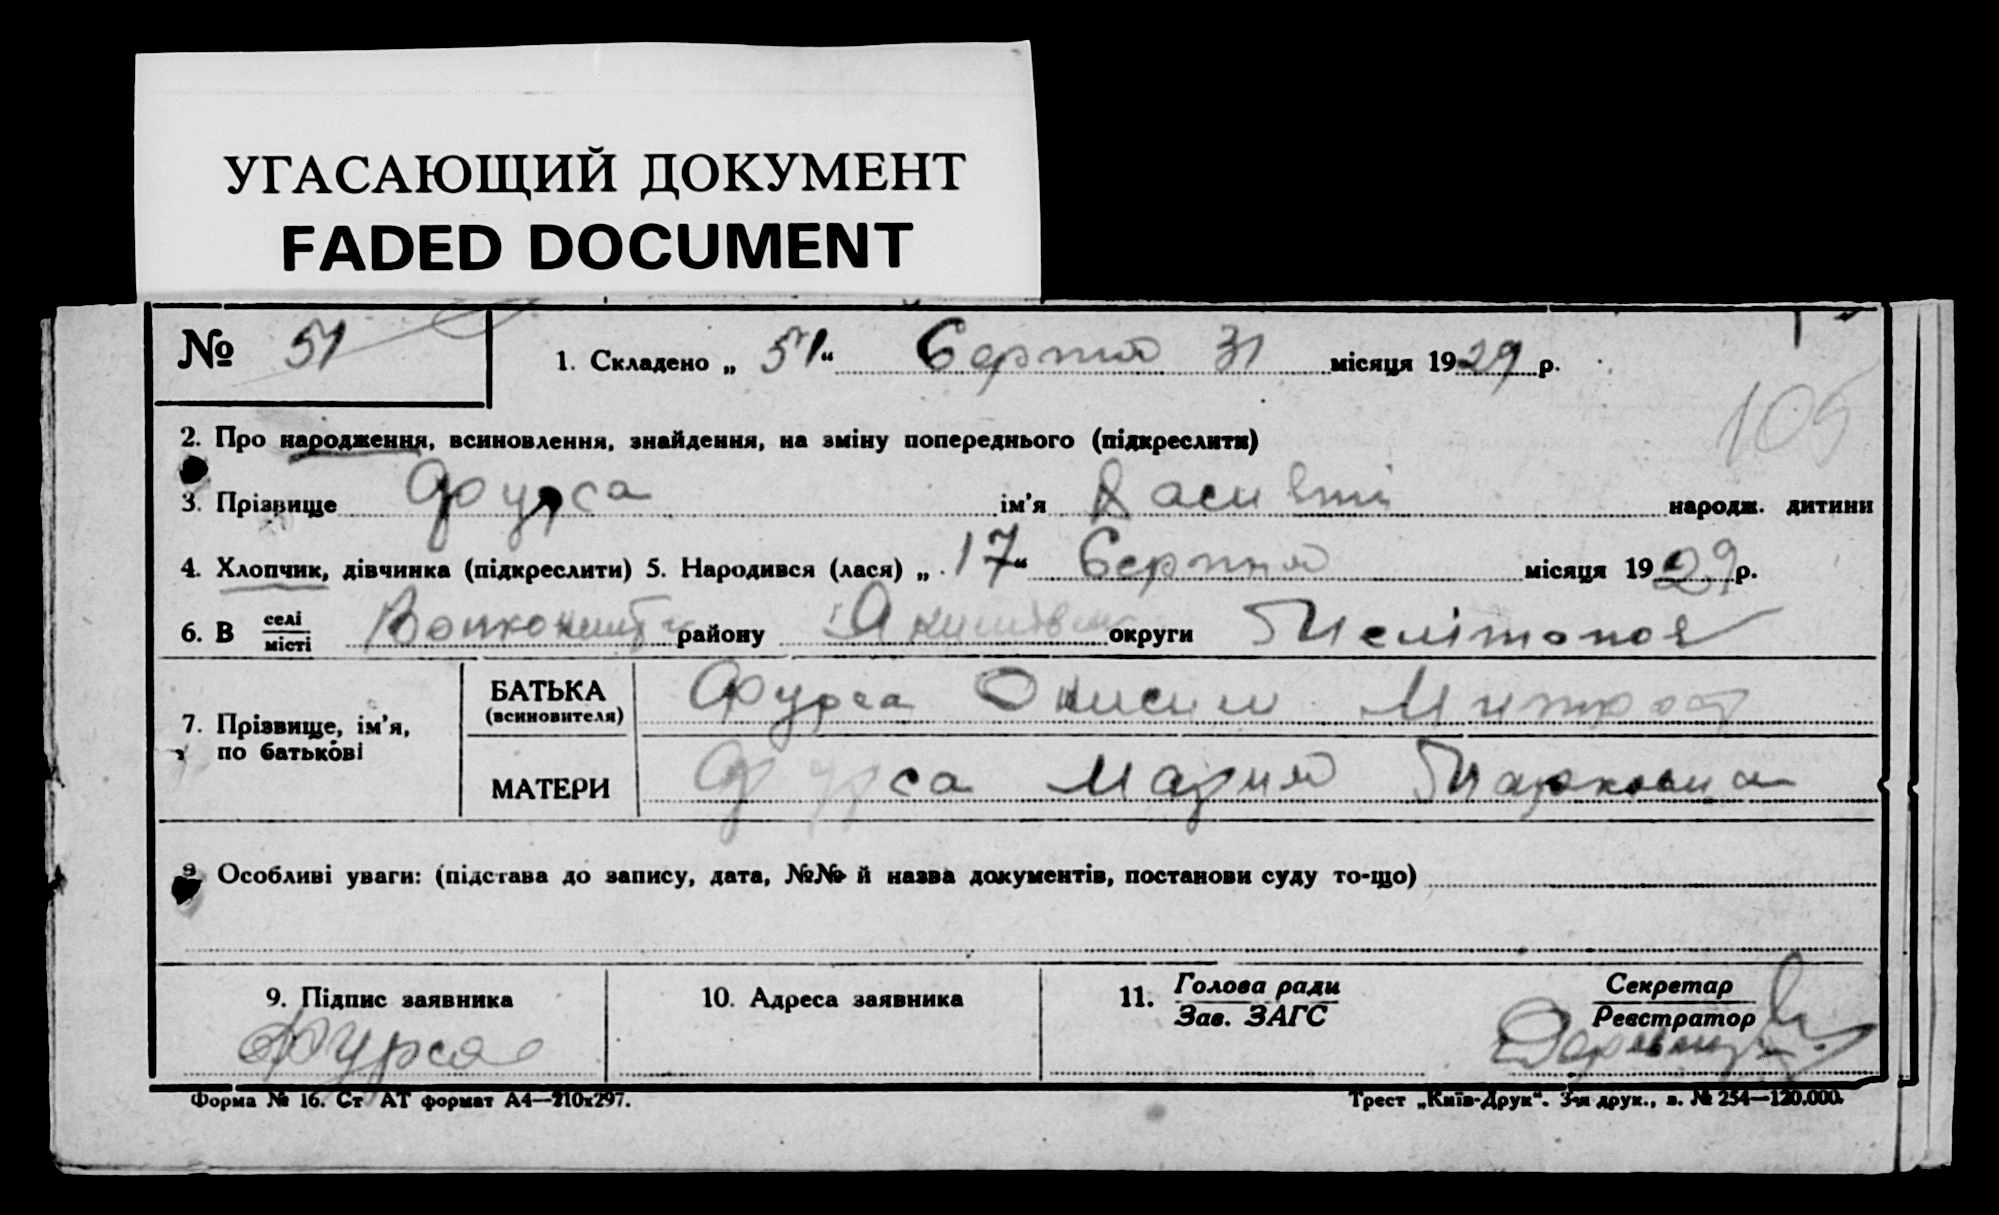 УГАСАЮЩИЙ ДОКУМЕНТ
FADED DOCUMENT
№ 51
1. Складено „ 51 “ Серпня 31 місяця 1929 р.
105
2. Про народження, всиновлення, знайдення, на зміну попереднього (підкреслити)
3. Прізвище Фурса ім'я Василій народж. дитини
4. Хлопчик, дівчинка (підкреслити) 5. Народився (лася) „ 17 “ Серпня місяця 1929 р.
6. В селі/місті району округи
7. Прізвище, ім'я, по батькові
БАТЬКА (всиновителя) Фурса Онисим
МАТЕРИ Фурса Мария Марковна
Особливі уваги: (підстава до запису, дата, №№ й назва документів, постанови суду то-що)
9. Підпис заявника
Фурса
10. Адреса заявника
11. Голова ради
Зав. ЗАГС
Секретар
Реєстратор
Форма № 16. Ст АТ формат А4—210х297.
Трест „Київ-Друк“. 3-я друк., з. № 254—120.000.